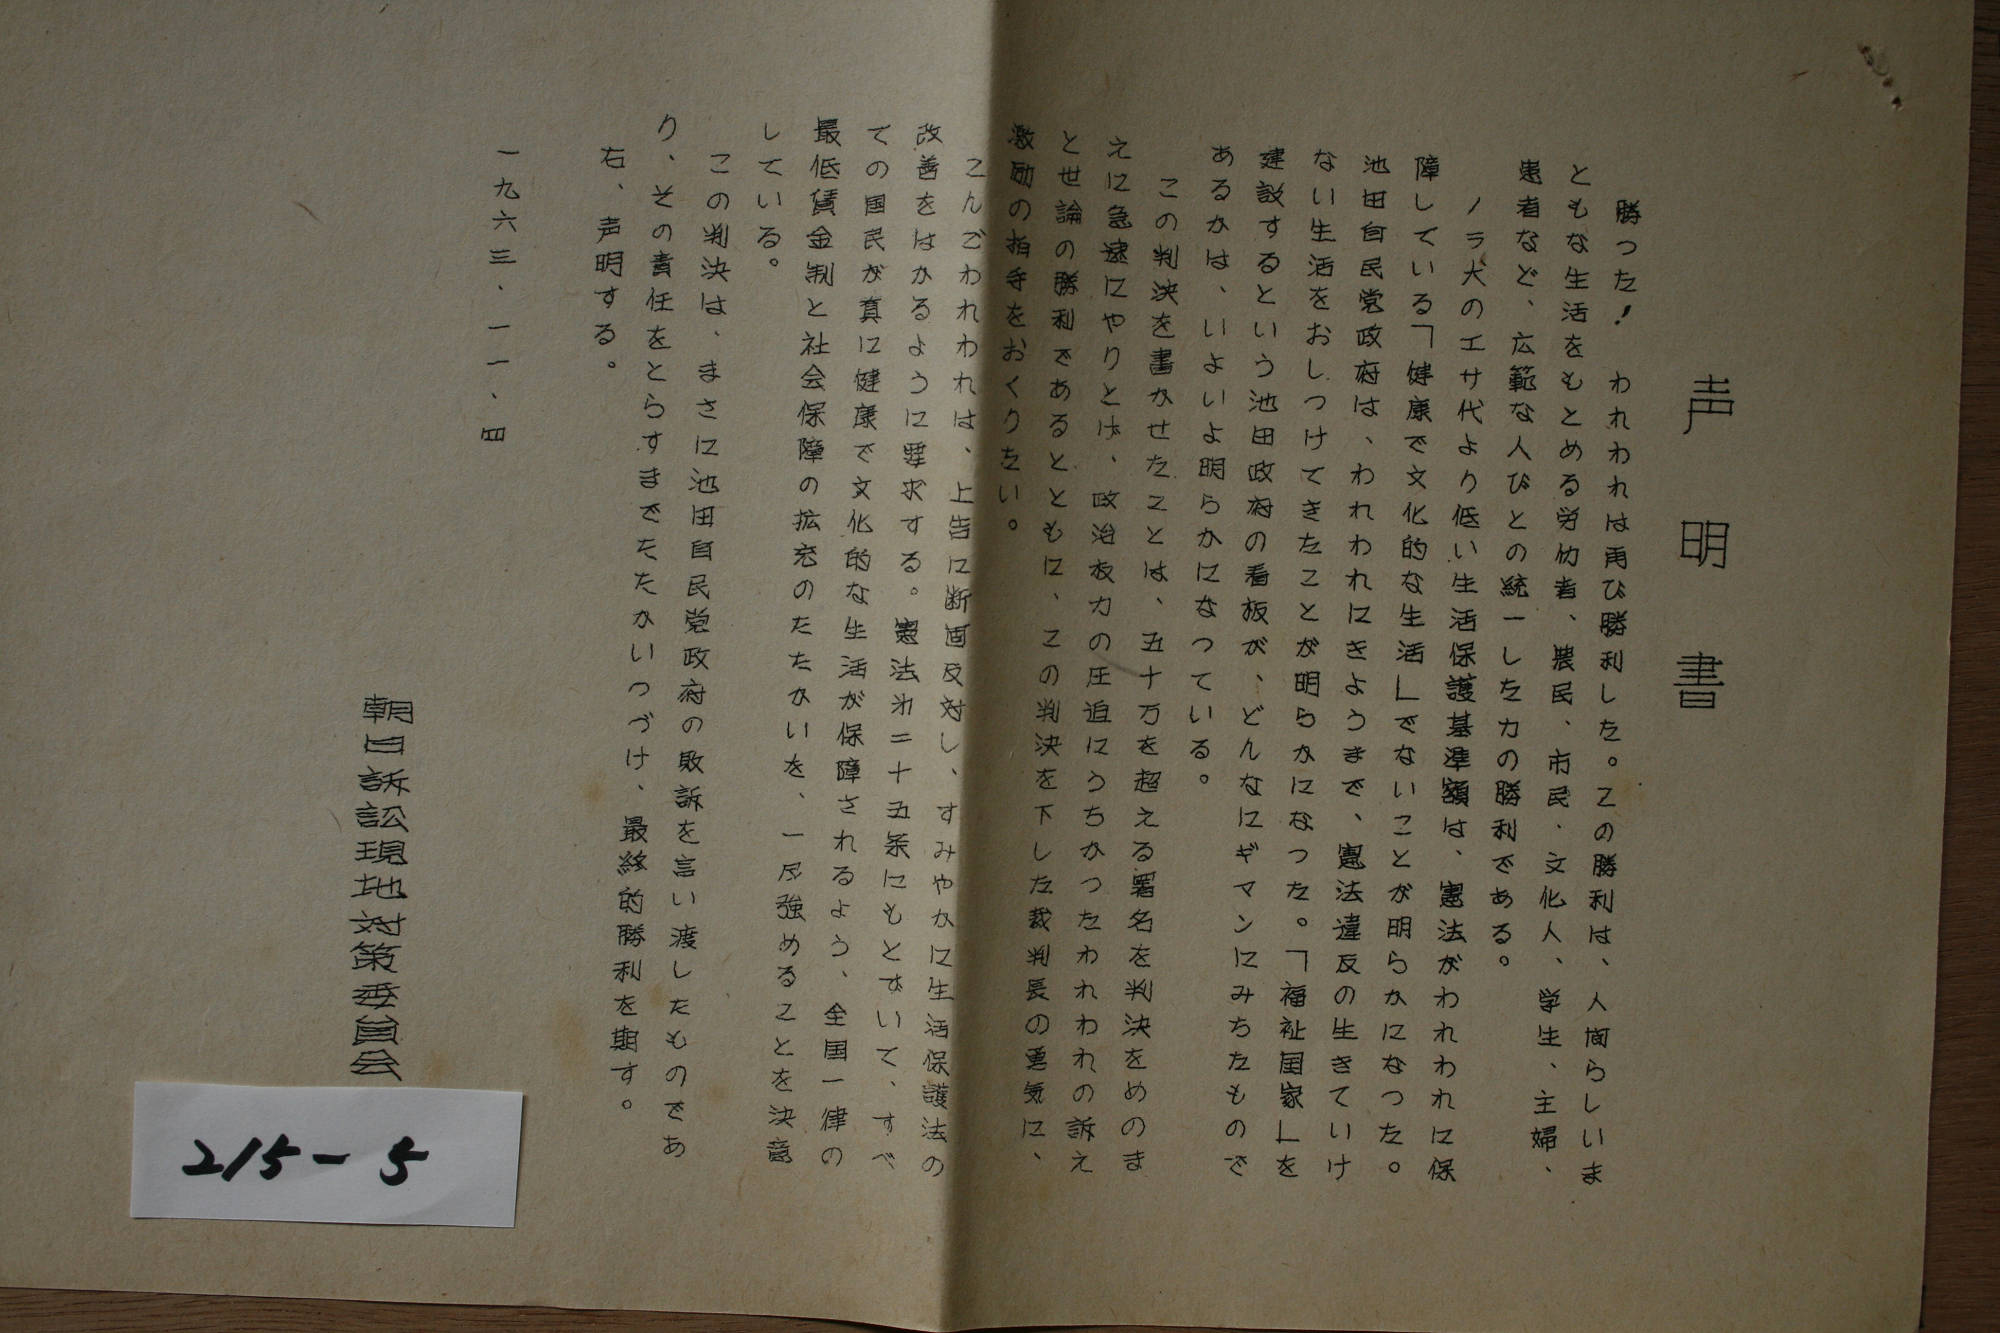 声明書
勝った！　われわれは再び勝利した。この勝利は、人間らしいま
ともな生活をもとめる労仂者、農民、市民、文化人、学生、主婦、
患者など、広範な人びとの統一した力の勝利である。
ノラ犬のエサ代より低い生活保護基準額は、憲法がわれわれに保
障している「健康で文化的な生活」でないことが明らかになった。
池田自民党政府は、われわれにきようまで、憲法違反の生きていけ
ない生活をおしつけてきたことが明らかになった。「福祉国家」を
建設するという池田政府の看板が、どんなにギマンにみちたもので
あるかは、いよいよ明らかになつている。
この判決を書かせたことは、五十万を超える署名を判決をめのま
えに急速にやりとげ、政治权力の圧迫にうちかつたわれわれの訴え
と世論の勝利であるとともに、この判決を下した裁判長の勇気に、
激励の拍手をおくりたい。
こんごわれわれは、上告に断固反対し、すみやかに生活保護法の
改善をはかるように要求する。憲法㐧二十五条にもとずいて、すべ
ての国民が真に健康で文化的な生活が保障されるよう、全国一律の
最低賃金制と社会保障の拡充のたたかいを、一層強めることを決意
している。
この判決は、まさに池田自民党政府の敗訴を言い渡したものであ
り、その責任をとらすまでたたかいつづけ、最終的勝利を期す。
右、声明する。
一九六三、一一、四
朝日訴訟現地対策委員会
215-5